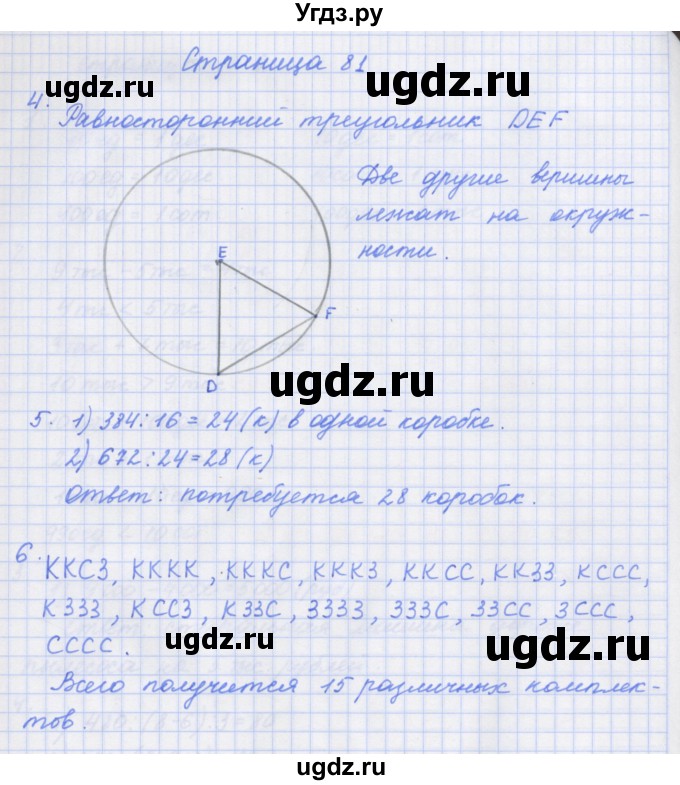 Угдз.ру
Страница 81
ugdz.ru
ugdz.ru
4. Равносторонний треугольник DEF
Две другие вершины
лежат на окруж-
ности.
E
F
D
ugdz.ru
5. 1) 384:16=24 (к) в одной коробке.
2) 672:24=28 (к)
Ответ: потребуется 28 коробок.
ugdz.ru
ugdz.ru
6. ККСЗ, КККК, КККС, КККЗ, ККСС, ККЗЗ, КССС,
КЗЗЗ, КССЗ, КЗЗС, ЗЗЗЗ, ЗЗЗС, ЗЗСС, ЗССС,
СССС.
ugdz.ru
ugdz.ru
Всего получается 15 различных комплек-
тов.
ugdz.ru
ugdz.ru